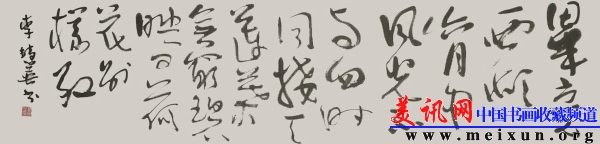 畢竟
西湖
六月中
風光不
与四时
同接天
蓮葉
無窮碧
映日荷
花别
樣红
美讯网 中国书画收藏频道
www.meixun.org